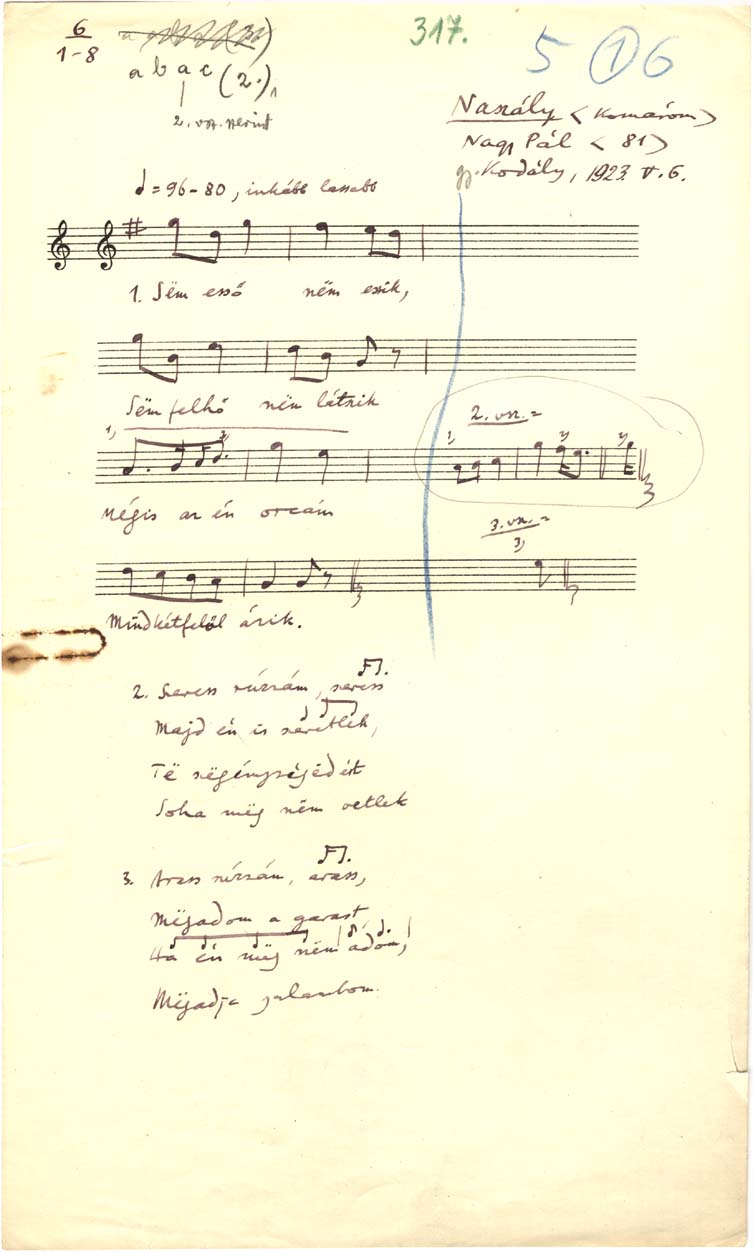 6
1-8
a b a c (2.)
2. vsz. szerint
317.
5 ① 6
Naszály < Komárom >
Nagy Pál < 81 >
gy. Kodály, 1923. V. 6.
♩ = 96-80, inkább lassabb
1. Sëm eső nëm esik,
Sëm felhő nëm látszik
Mégis az én orcám
Mindkétfelől ázik.
2. vsz. =
3. vsz. =
2. Szeress rúzsám, szeress
Majd én is szeretlek,
Të szëgénységëdért
Soha mëg nëm vetlek
3. Arass rúzsám, arass,
Mëgadom a garast
Ha én mëg nëm adom,
Mëgadja galambom.